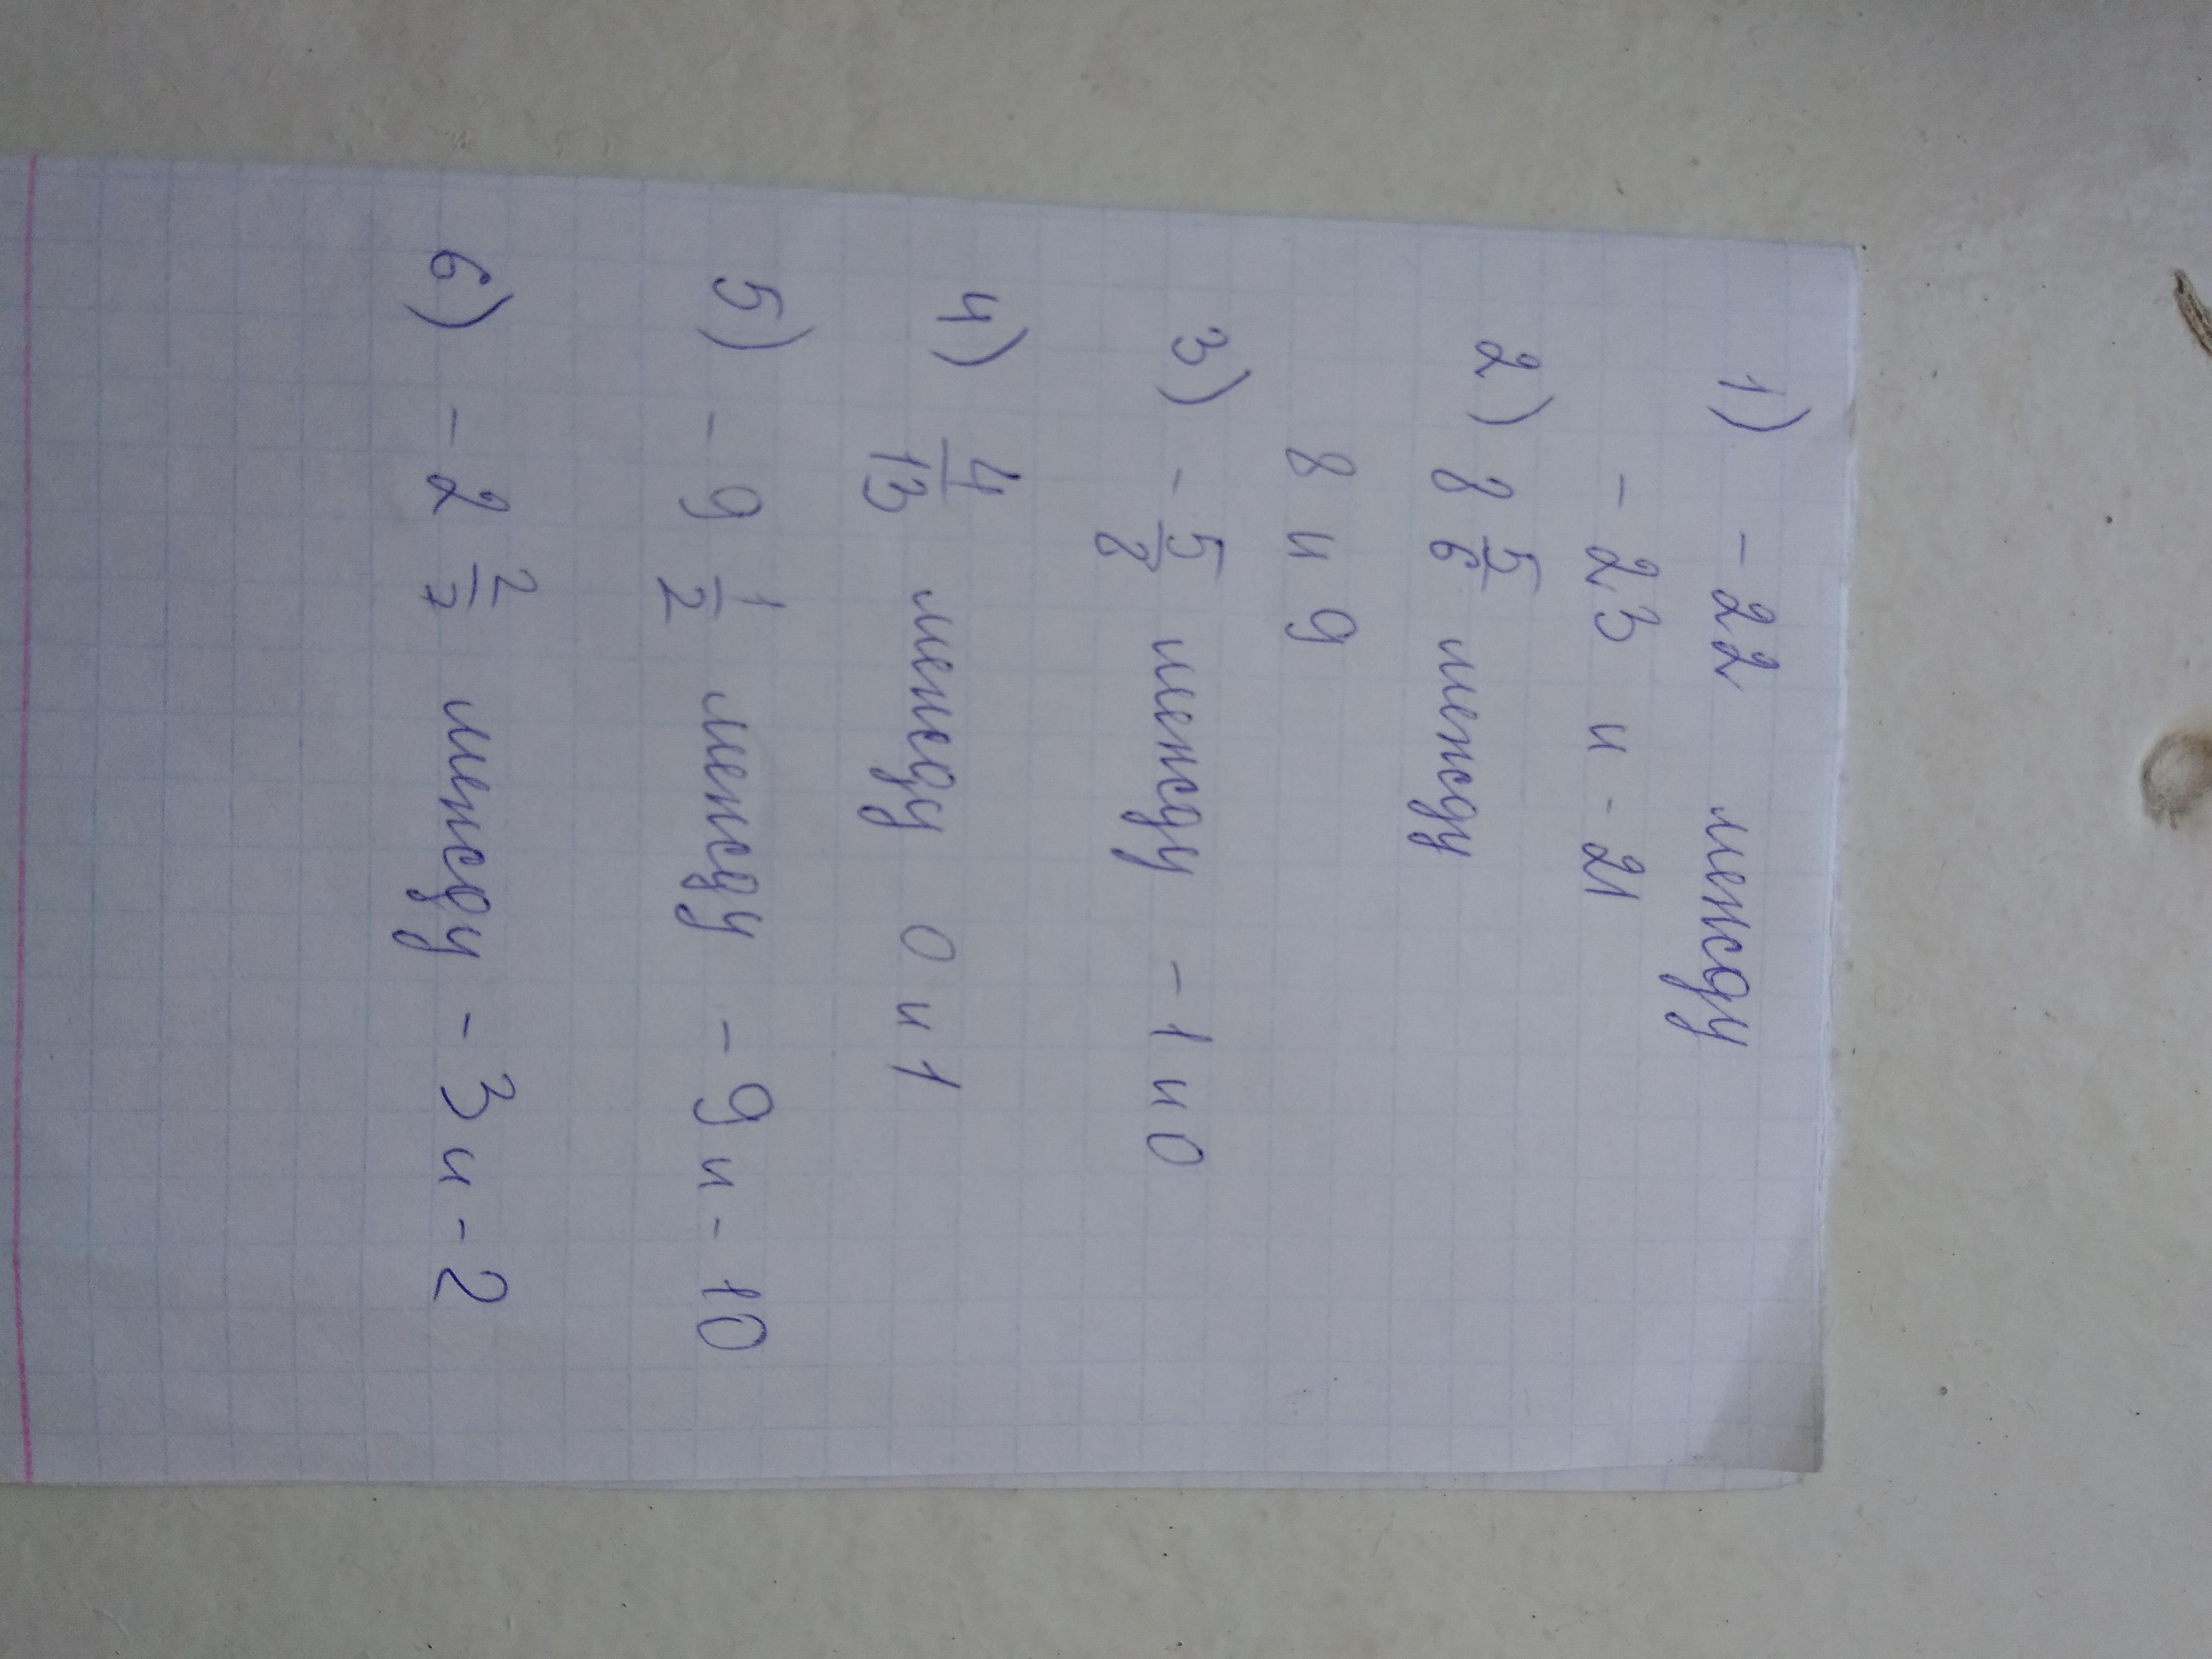 1) - 22 между
- 23 и - 21
2) 8 5/6 между
8 и 9
3) - 5/8 между - 1 и 0
4) 4/13 между 0 и 1
5) - 9 1/2 между - 9 и - 10
6) - 2 2/7 между - 3 и - 2